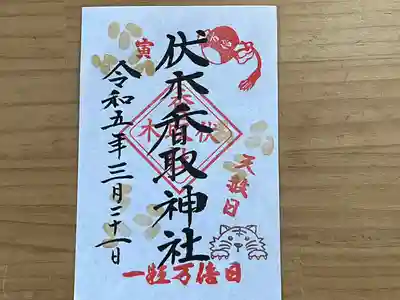 伏木香取神社
令和五年三月二十一日
寅
天赦日
一粒万倍日